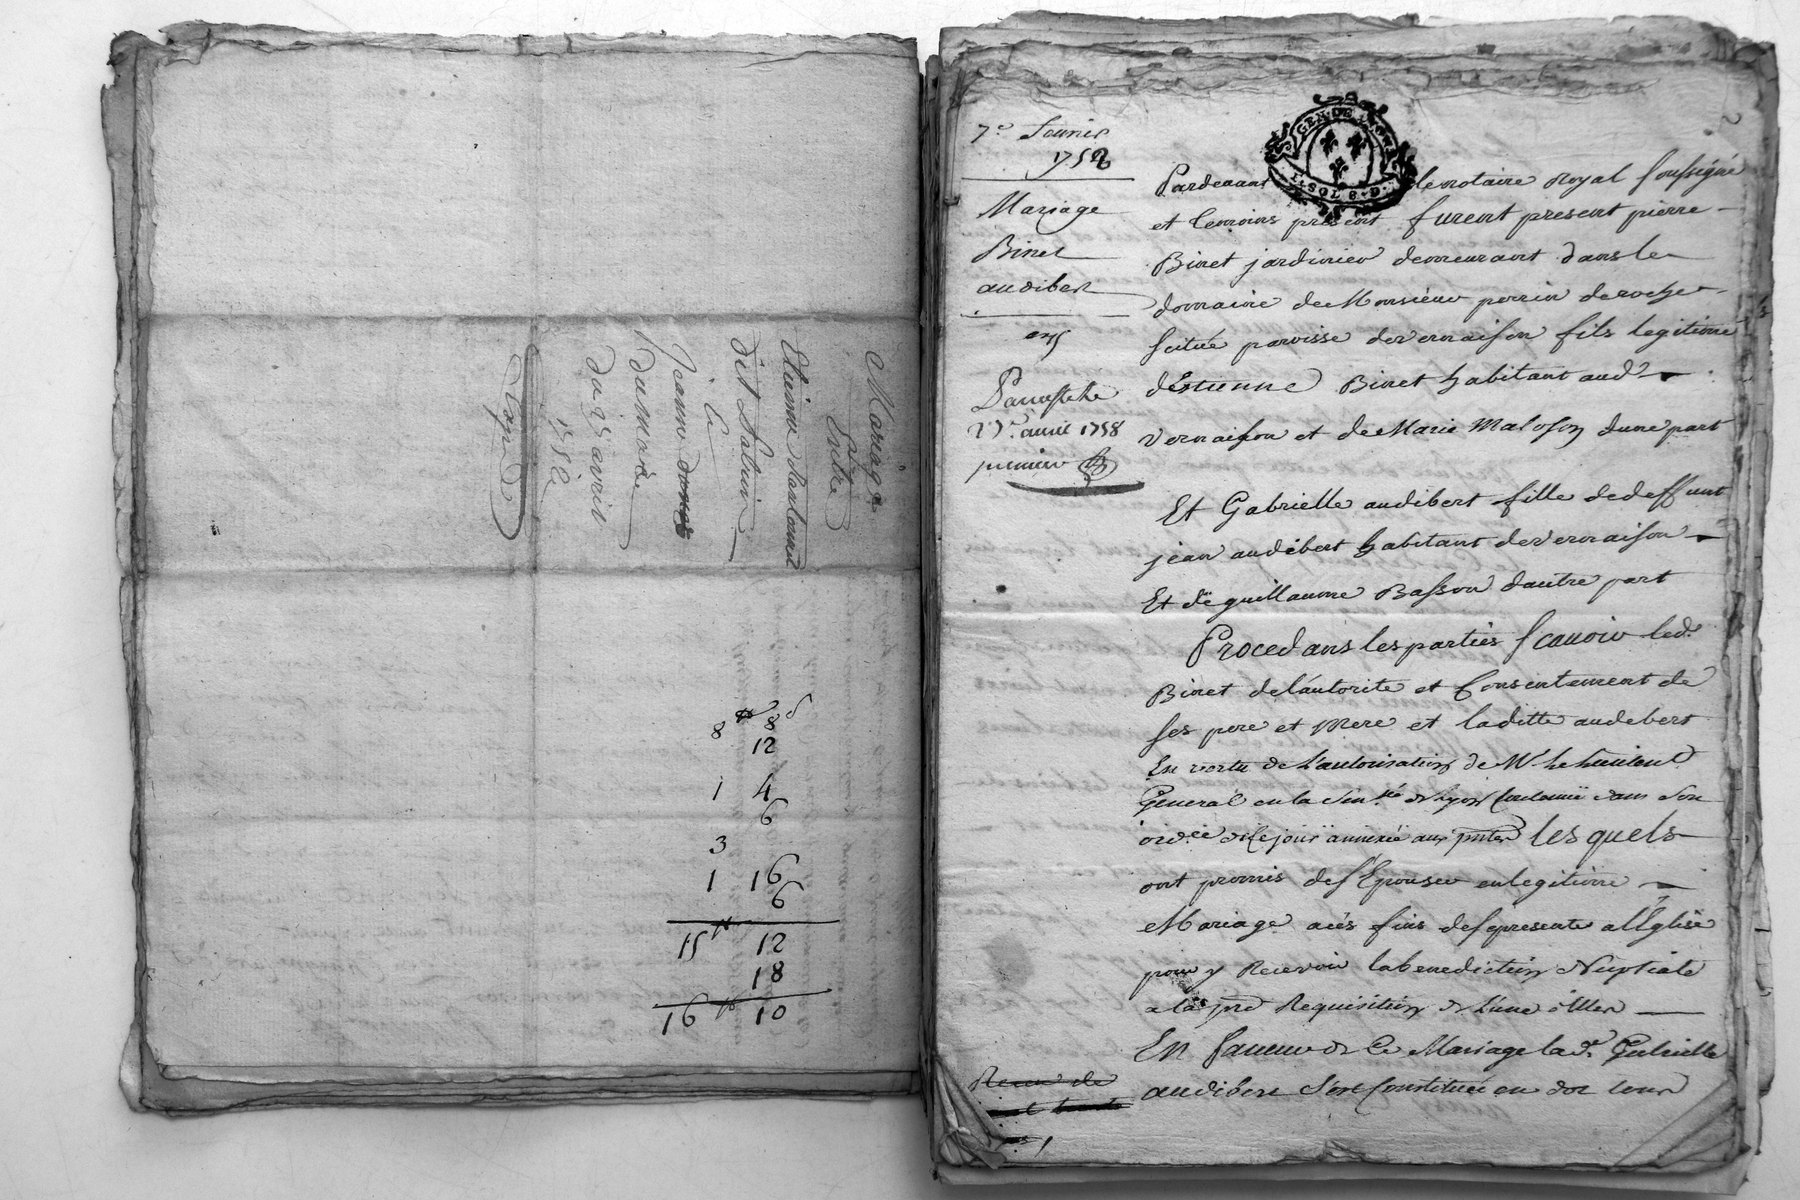 Mariage
Entre
Etienne
dit
Et
Jeanne
du 25 avril
1752
Expedie
8 8
12
1 4
6
3
1 16
6
15 12
18
16 10
7e
1752
Mariage
Binet
audibert
27e avril 1758
premiere
GEN. DE LYON
1. SOL 8. D.
Pardevant le notaire Royal soussigné
et temoins present furent present pierre
Binet jardinier demeurant dans le
domaine de Monsieur perrin deroche
scitué paroisse de vernaison fils legitime
d'Estienne Binet habitant aud.
vernaison et de Marie d'une part
Et Gabrielle audibert fille de deffunt
jean audibert habitant de vernaison
Et de guillaume Basson d'autre part
Procedans les parties scavoir led.
Binet de l'autorite et Consentement de
ses pere et mere et laditte audebert
En vertu de L'autorisation de Mr le Lieutenant
General en la de Lyon contenue dans son
ordce de ce jour annexée aux pntes lesquels
ont promis de s'Epouser en legitime
Mariage a ces fins de se presenter a l'Eglise
pour y Recevoir la benediction Nuptiale
a la pre Requisition de L'une d'Elles
En faveur de Ce Mariage lad. Gabrielle
audibert s'est Constituée en dot tous